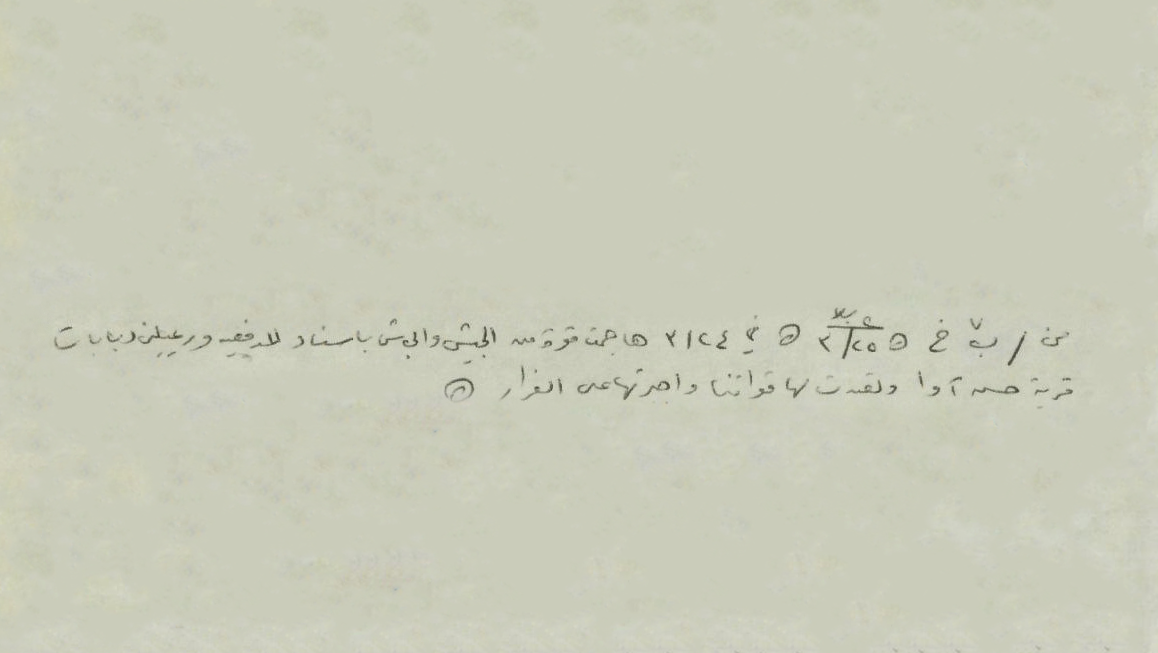 من / ب ٧ خ ٢٥/٣ في ٣/٢٤ هاجمت قوة من الجيش والجاش باسناد المدفعيه ورعيلين دبابات
قرية حسن آوا وتصدت لها قواتنا واجبرتها على الفرار